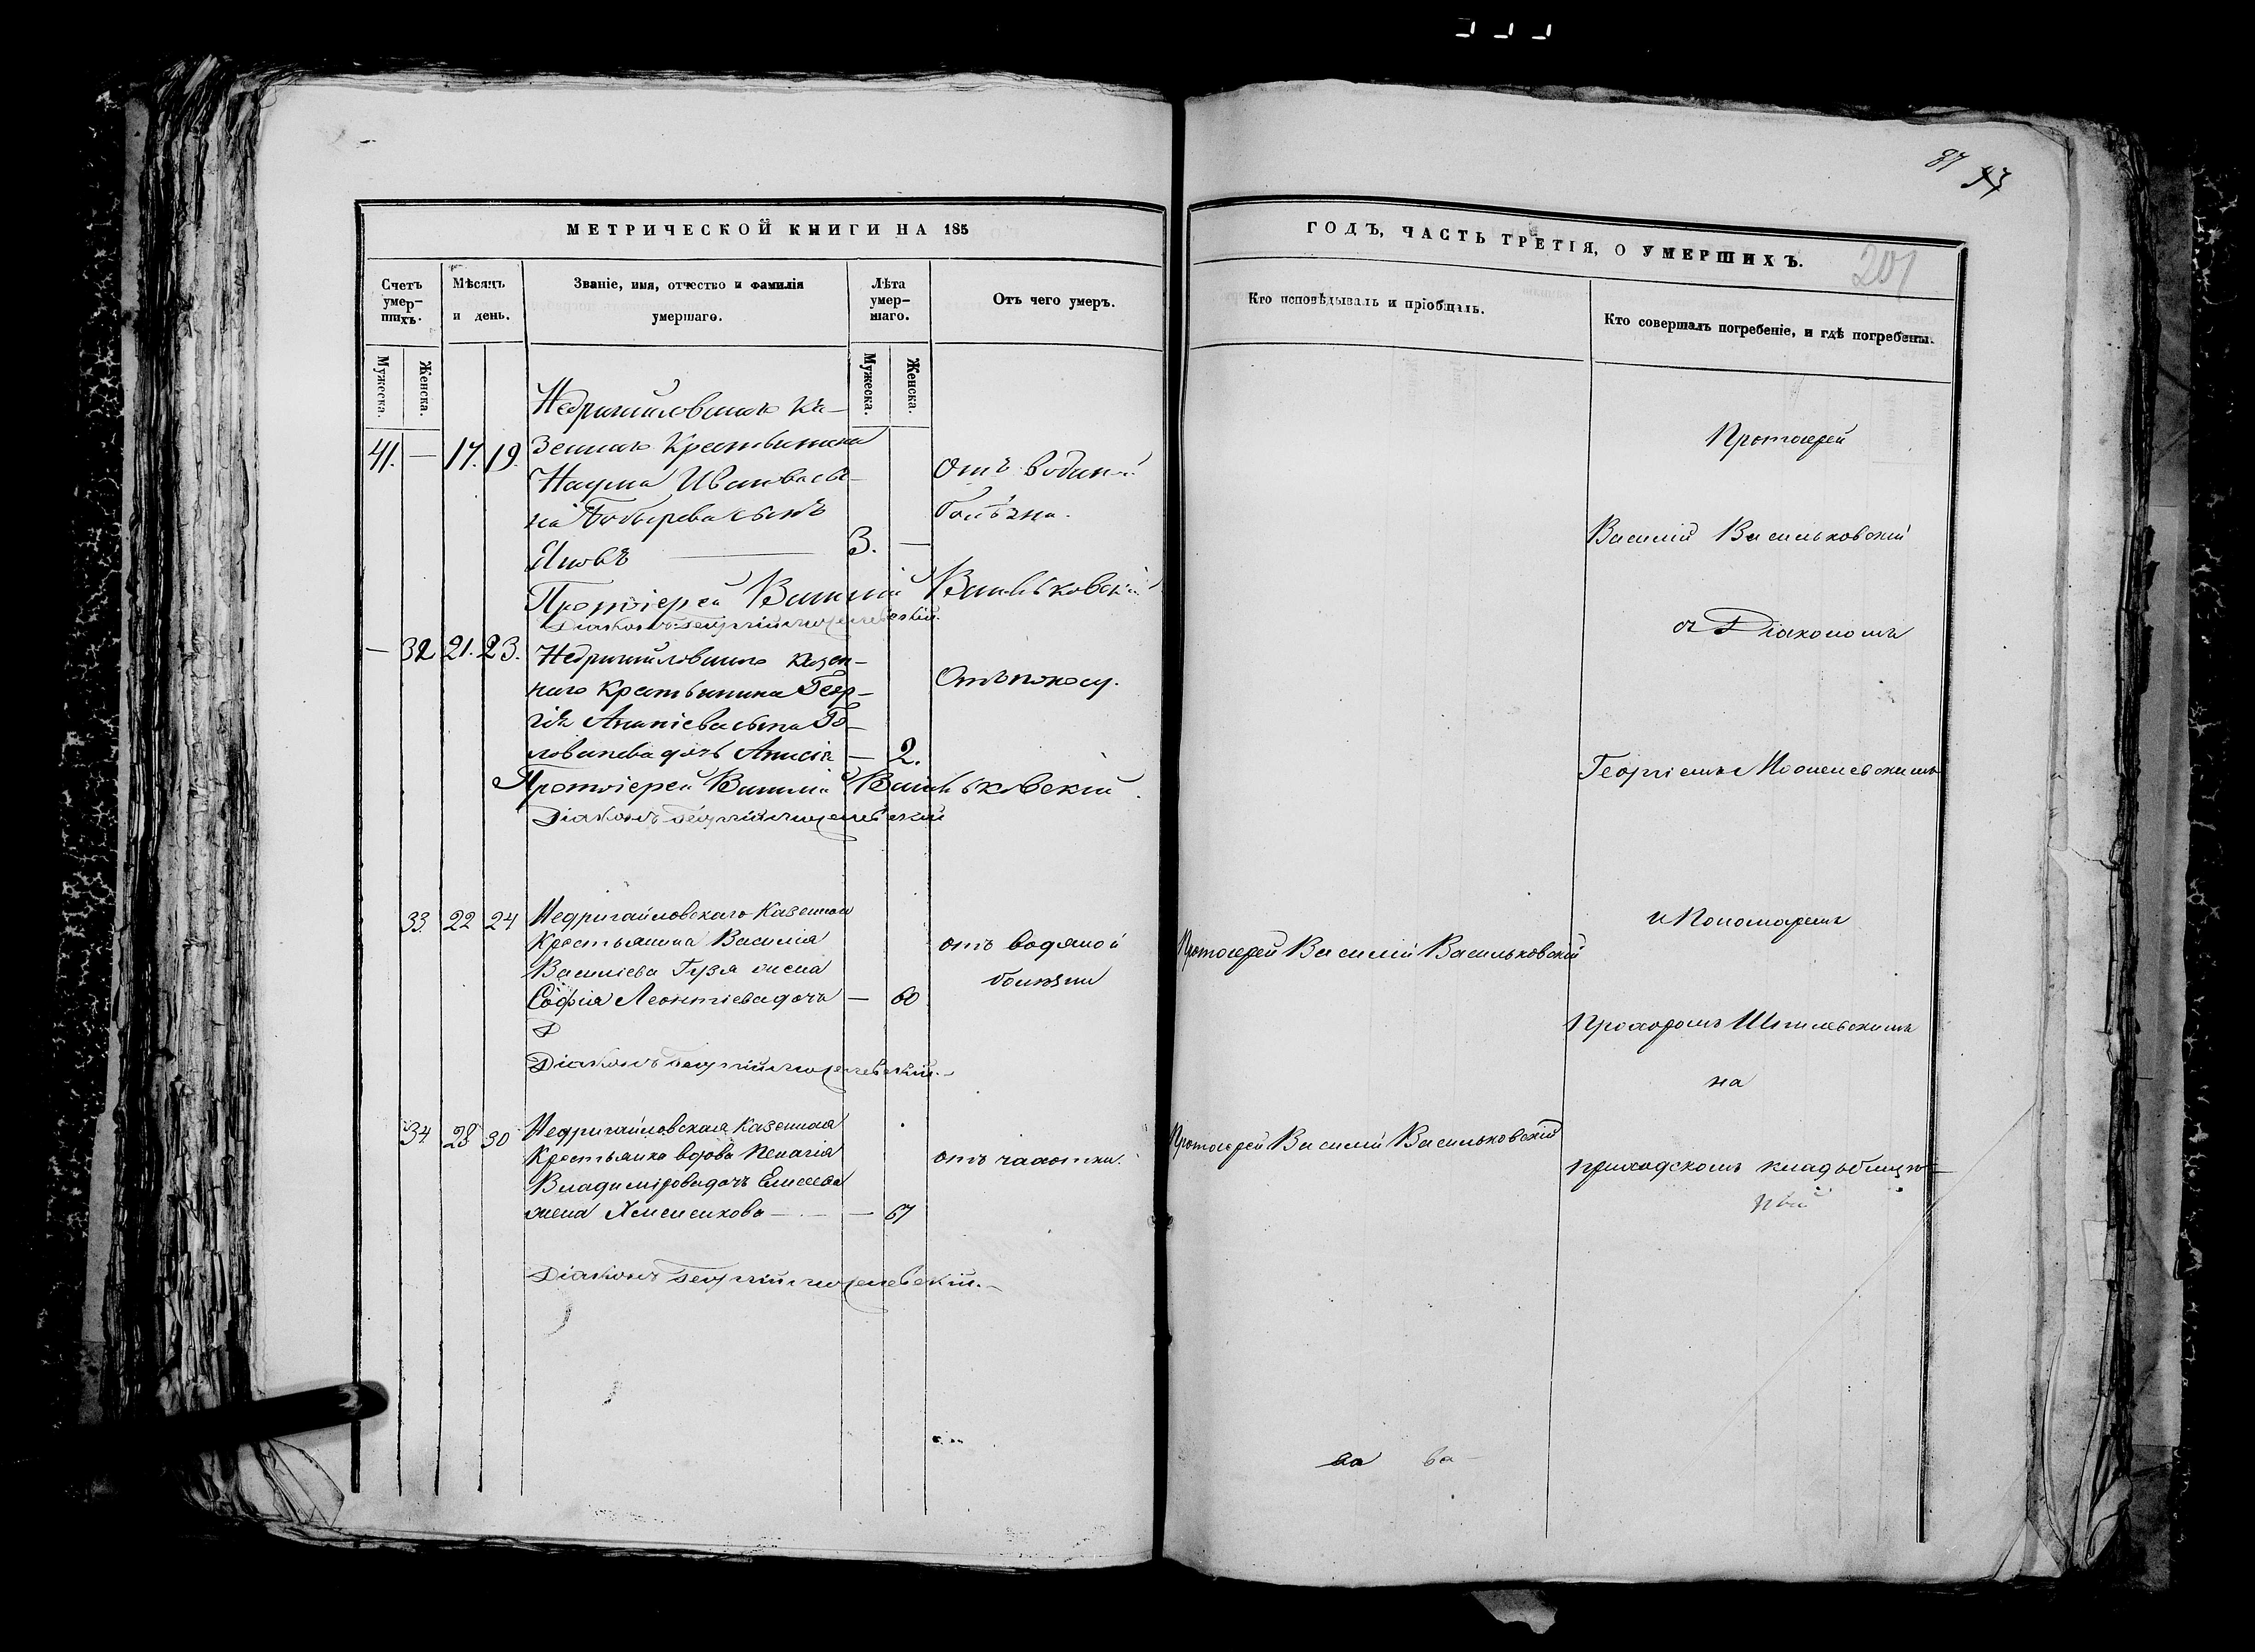 87 97
МЕТРИЧЕСКОЙ КНИГИ НА 185
ГОДЪ, ЧАСТЬ ТРЕТІЯ, О УМЕРШИХЪ.
201
Счетъ умер-шихъ.
Мѣсяцъ и день.
Званіе, имя, отчество и фамилія умершаго.
Лѣта умер-шаго.
Отъ чего умеръ.
Кто исповѣдывалъ и пріобщалъ.
Кто совершалъ погребеніе, и гдѣ погребены.
Мужеска.
Женска.
Мужеска.
Женска.
Недригайловскаго Ка-
41. — 17. 19. зеннаго Крестьянина
Наума Иванова сы- Отъ водяной
на сынъ болѣзни.
Яковъ 3. —
Протоіерей Василій Васильковскій
Діаконъ Георгій
— 32 21. 23. Недригайловскаго казен-
наго Крестьянина Геор- Отъ поносу.
гія Ананіева сына Го-
ловачева дочь Анисія — 2.
Протоіерей Василій Васильковскій.
Діаконъ Георгій
33 22 24 Недригайловскаго Казеннаго
Крестьянина Василія отъ водяной
Василіева Гузя жена болѣзни
Софія Леонтіева дочь — 60
Діаконъ Георгій
34 28 30 Недригайловская Казенная
Крестьянка вдова Пелагія отъ чахотки.
Владимірова дочь Елисеева
жена — 67
Діаконъ Георгій
Протоіерей Василій Васильковскій
Протоіерей Василій Васильковскій
Протоіерей
Василій Васильковскій
съ Діакономъ
Георгіемъ
и Пономаремъ
Прохоромъ
на
приходскомъ кладбищѣ
ва ва